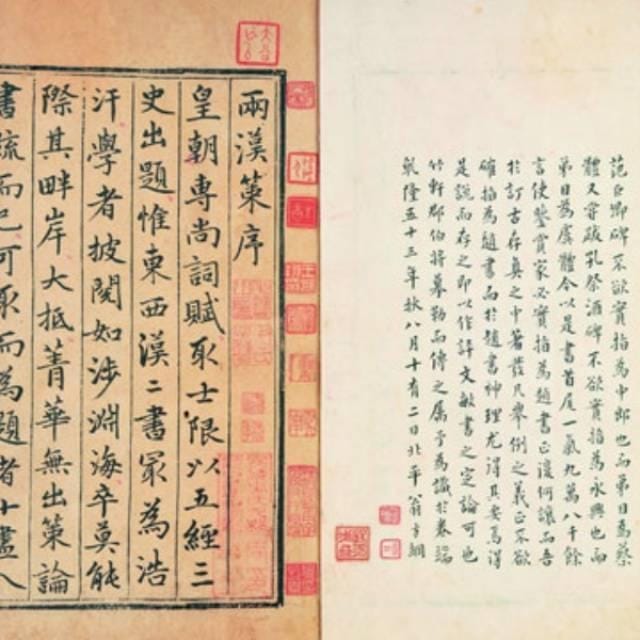 范巨卿碑不欲實指為中郎也而第目為蔡
體又嘗跋孔祭酒碑不欲實指為永興也而
第目為虞體今以是書首尾一氣九萬八千餘
言使鑒賞家必實指為趙書正復何讓而吾
於訂古存真之中著發凡舉例之義正不欲
確指為趙書而於趙書神理尤得其要焉得
是說而存之即以作評文敏書之定論可也
竹軒郡伯將摹勒而傳之屬予為識於卷端
乾隆五十三年秋八月十有二日北平翁方綱
兩漢策序
皇朝專尚詞賦取士限以五經三
史出題惟東西漢二書冣為浩
汗學者披閱如涉淵海卒莫能
際其畔岸大抵菁華無出策論
書疏而已可取而為題者十盡八